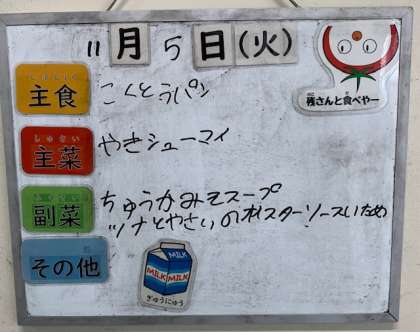 11月5日(火)
残さんと食べやー
主食 こくとうパン
しゅさい
主菜 やきシューマイ
副菜 ちゅうかみそスープ
ツナとやさいのオイスターソースいため
その他
MILK
MILK MILK
ぎゅうにゅう